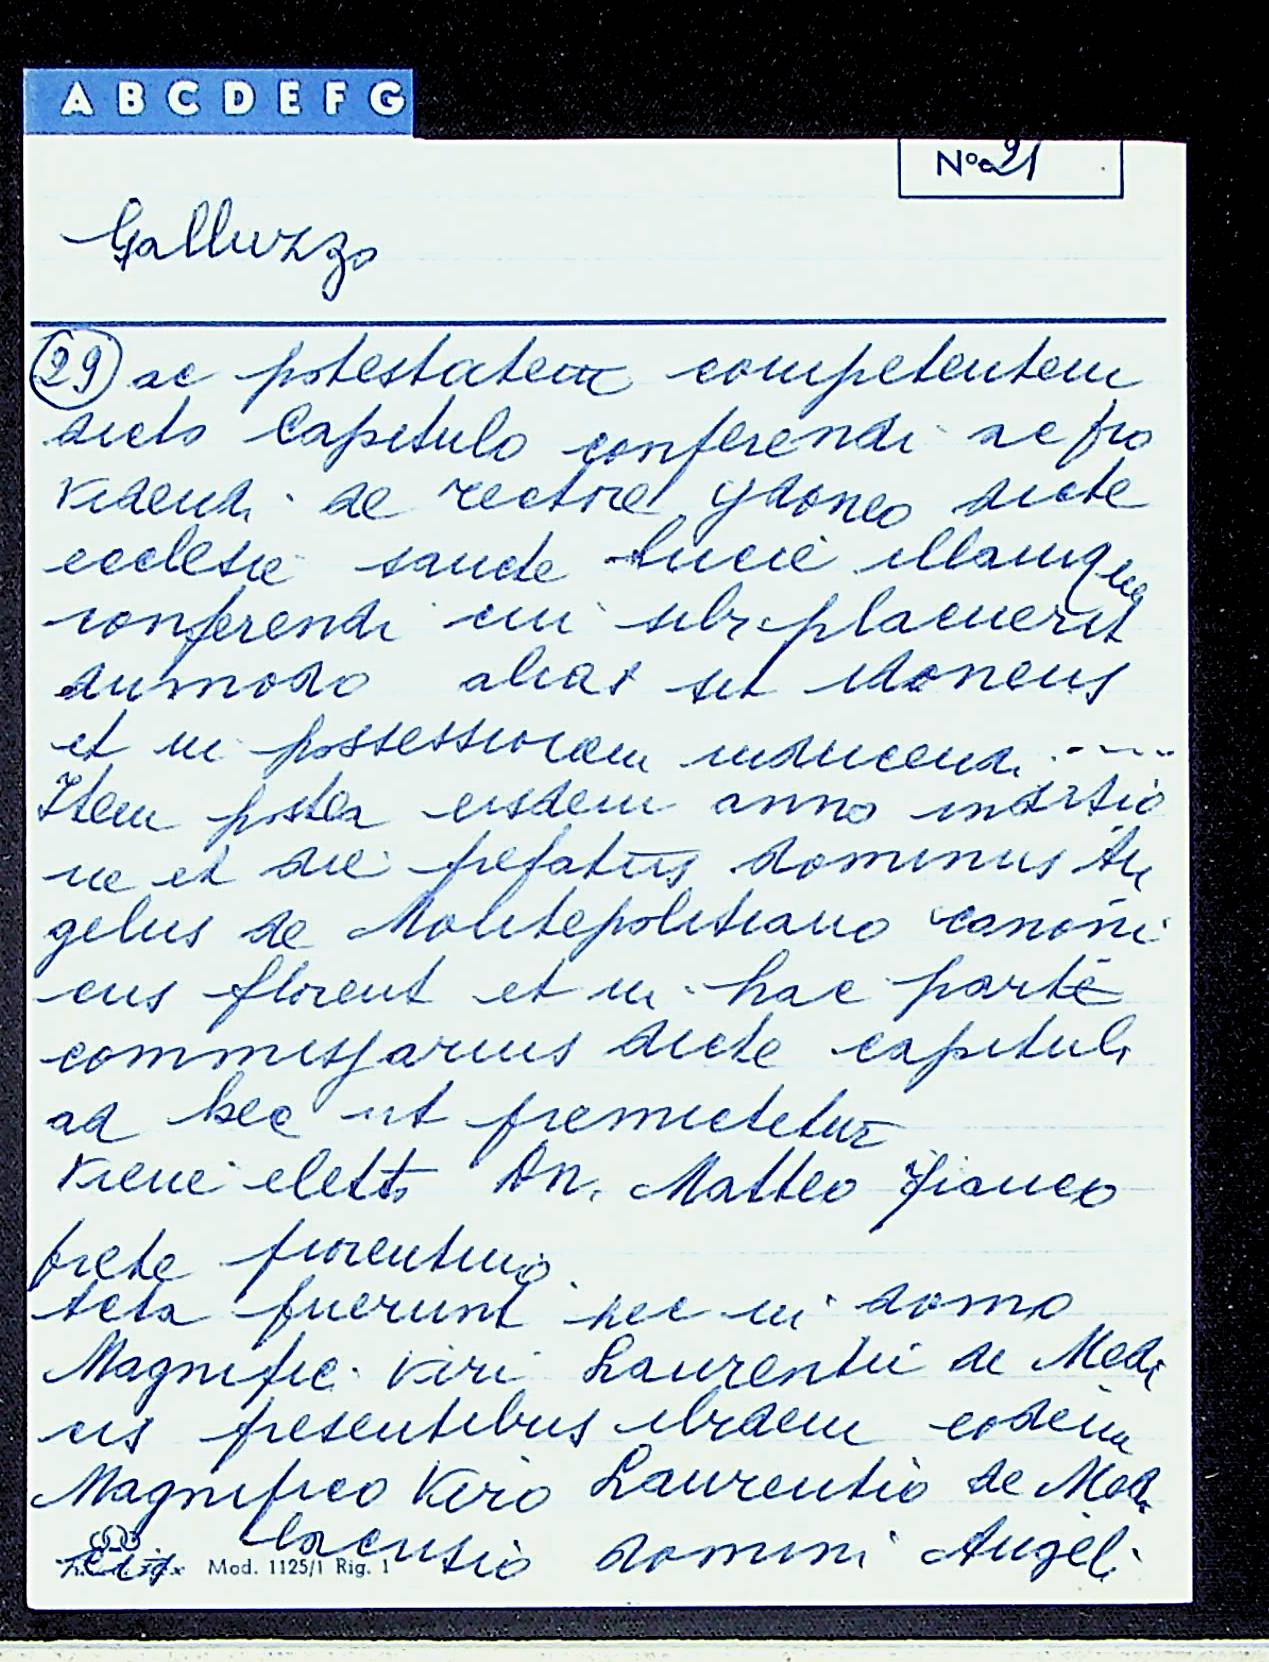 A B C D E F G
Nº 21
Galluzzo
29 ac potestatem competentem
dicto Capitulo conferendi ac pro
videndi de rectore ydoneo dicte
ecclesie sancte Lucie illamque
conferendi cui sibi placuerit
dummodo alias sit idoneus
et in possessionem inducendi ----
Item postea eisdem anno indictio
ne et die prefatus dominus An
gelus de Montepolitiano canoni
cus florent et in hac parte
commissarius dicte capituli
ad hec ut premictetur
Viene eletto Dn. Matteo Franco
prete fiorentino.
Acta fuerunt hec in domo
Magnifici Viri Laurentii de Medi
cis presentibus ibidem eodem
Magnifico Viro Laurentio de Medi
cis domini Angeli
Mod. 1125/1 Rig. 1